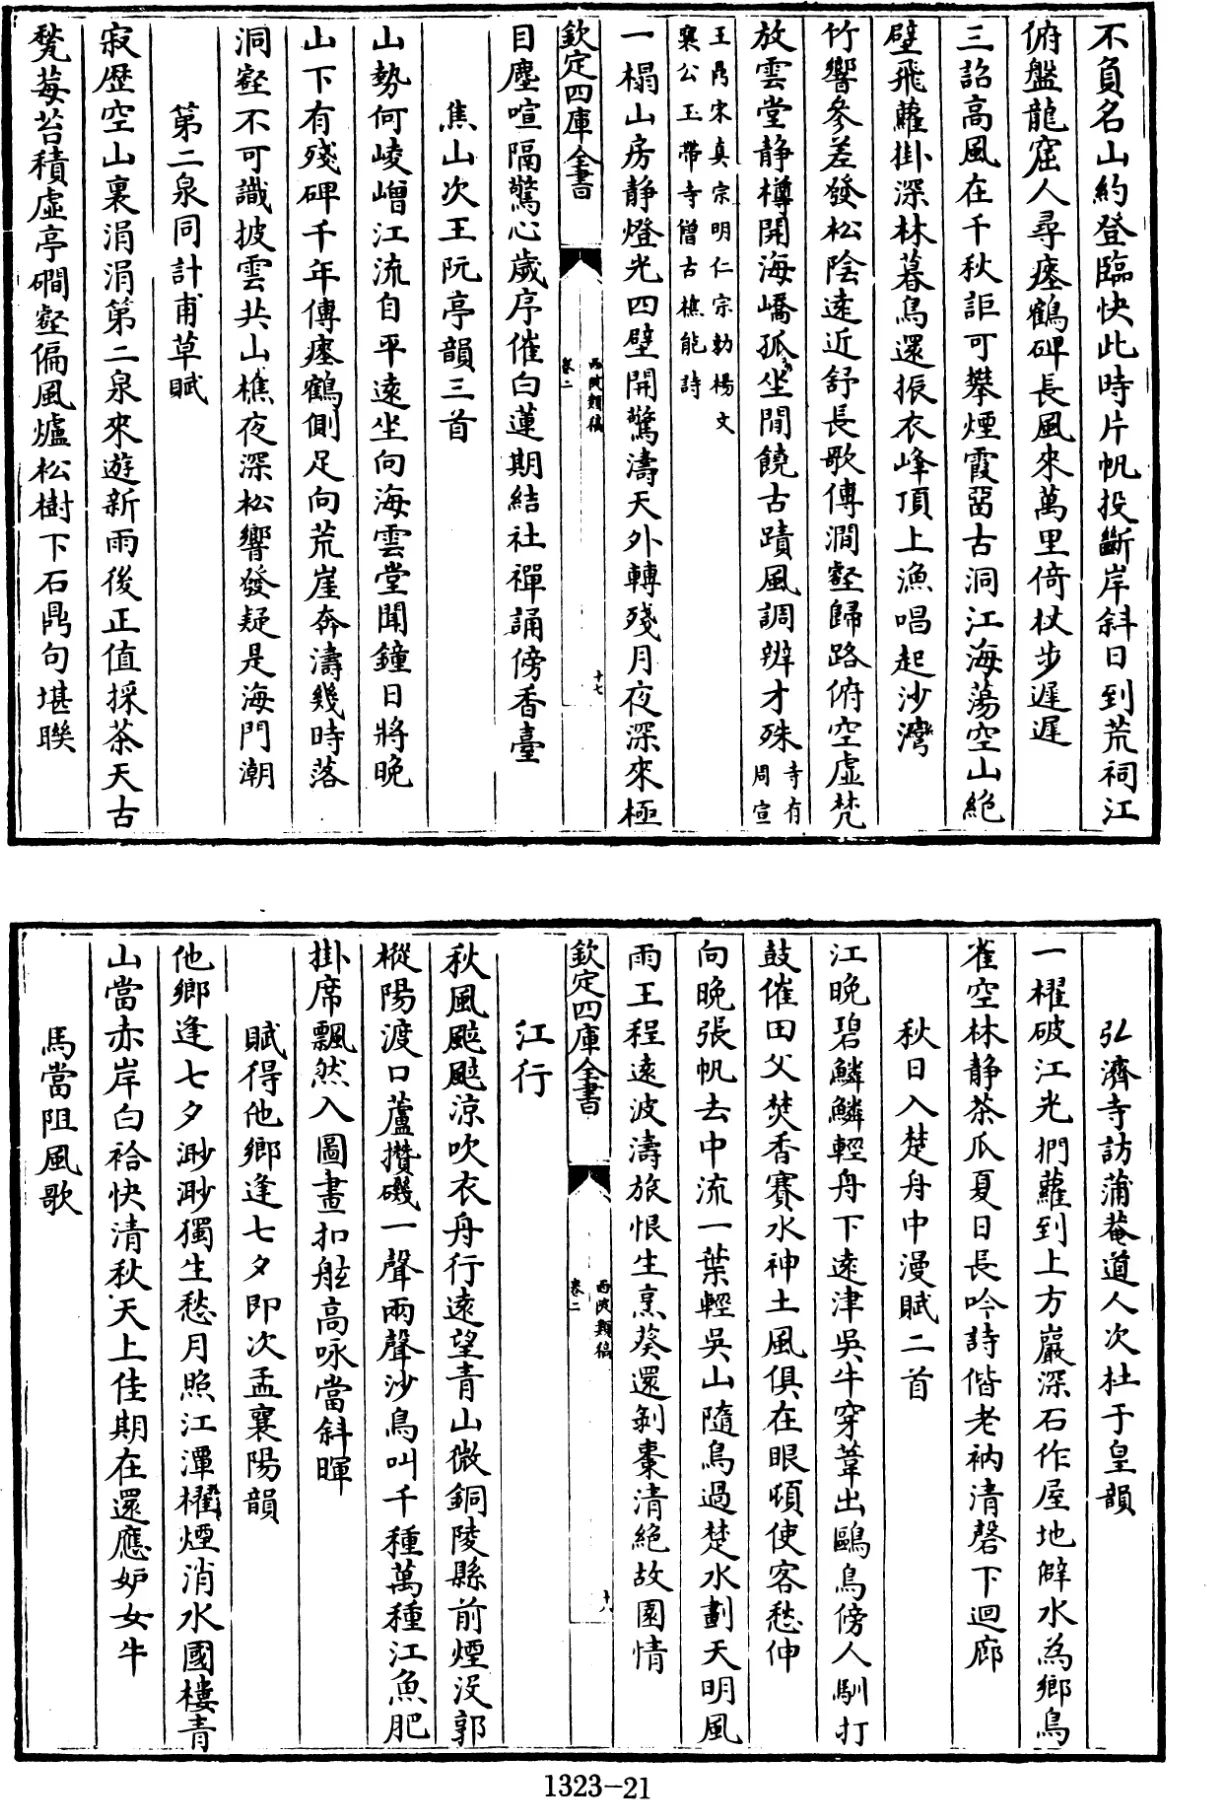 不負名山約登臨快此時片帆投斷岸斜日到荒祠江
俯盤龍窟人尋瘞鶴碑長風來萬里倚杖步遲遲
三詔高風在千秋詎可攀煙霞留古洞江海蕩空山絶
壁飛蘿掛深林暮鳥還振衣峰頂上漁唱起沙灣
竹響參差發松陰逺近舒長歌傳澗壑歸路俯空虛梵
放雲堂静樽開海嶠孤坐間饒古蹟風調辨才殊寺有周宣
王鼎宋真宗明仁宗勅楊文
襄公玉帶寺僧古樵能詩
一榻山房静燈光四壁開驚濤天外轉殘月夜深來極
欽定四庫全書
西陂類稿
卷二
十七
目塵喧隔驚心歲序催白蓮期結社禪誦傍香臺
焦山次王阮亭韻三首
山勢何崚嶒江流自平逺坐向海雲堂聞鐘日將晩
山下有殘碑千年傳瘞鶴側足向荒崖奔濤幾時落
洞壑不可識披雲共山樵夜深松響發疑是海門潮
第二泉同計甫草賦
寂歴空山裏涓涓第二泉來遊新雨後正值採茶天古
甃莓苔積虛亭磵壑偏風爐松樹下石鼎句堪聯
弘濟寺訪蒲菴道人次杜于皇韻
一櫂破江光捫蘿到上方巖深石作屋地僻水為鄉鳥
雀空林静茶瓜夏日長吟詩偕老衲清磬下迴廊
秋日入楚舟中漫賦二首
江晩碧鱗鱗輕舟下逺津吳牛穿葦出鷗鳥傍人馴打
鼓催田父焚香賽水神土風俱在眼頓使客愁伸
向晩張帆去中流一葉輕吳山隨鳥過楚水劃天明風
雨王程逺波濤旅恨生烹葵還剝棗清絶故園情
欽定四庫全書
西陂類稿
卷二
十八
江行
秋風颼颼涼吹衣舟行逺望青山微銅陵縣前煙没郭
樅陽渡口蘆攢磯一聲兩聲沙鳥叫千種萬種江魚肥
掛席飄然入圖畫扣舷高咏當斜暉
賦得他鄉逢七夕即次孟襄陽韻
他鄉逢七夕渺渺獨生愁月照江潭櫂煙消水國樓青
山當赤岸白袷快清秋天上佳期在還應妒女牛
馬當阻風歌
1323-21